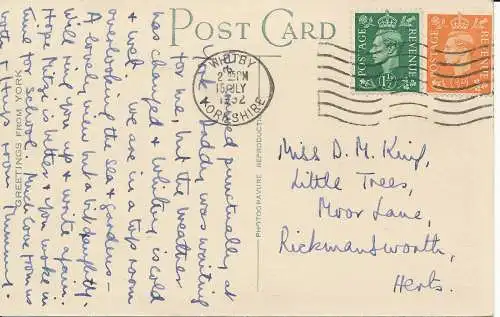 POST CARD
WHITBY
2:15PM
15 JLY
1952
YORKSHIRE
POSTAGE REVENUE
1½D
POSTAGE REVENUE
½D
GREETINGS FROM YORK
PHOTOGRAVURE REPRODUCTION
punctually at
York & Daddy was waiting
for me, but the weather
has changed & Whitby is cold
& wet. We are in a top room
overlooking the sea & gardens -
A lovely view but a bit draughty.
Will ring you up & write again.
Hope Mitzi is better & you woke in
time for school. Much love from us
both & Mummy.
Miss D. M. King,
Little Trees,
Moor Lane,
Rickmansworth,
Herts.